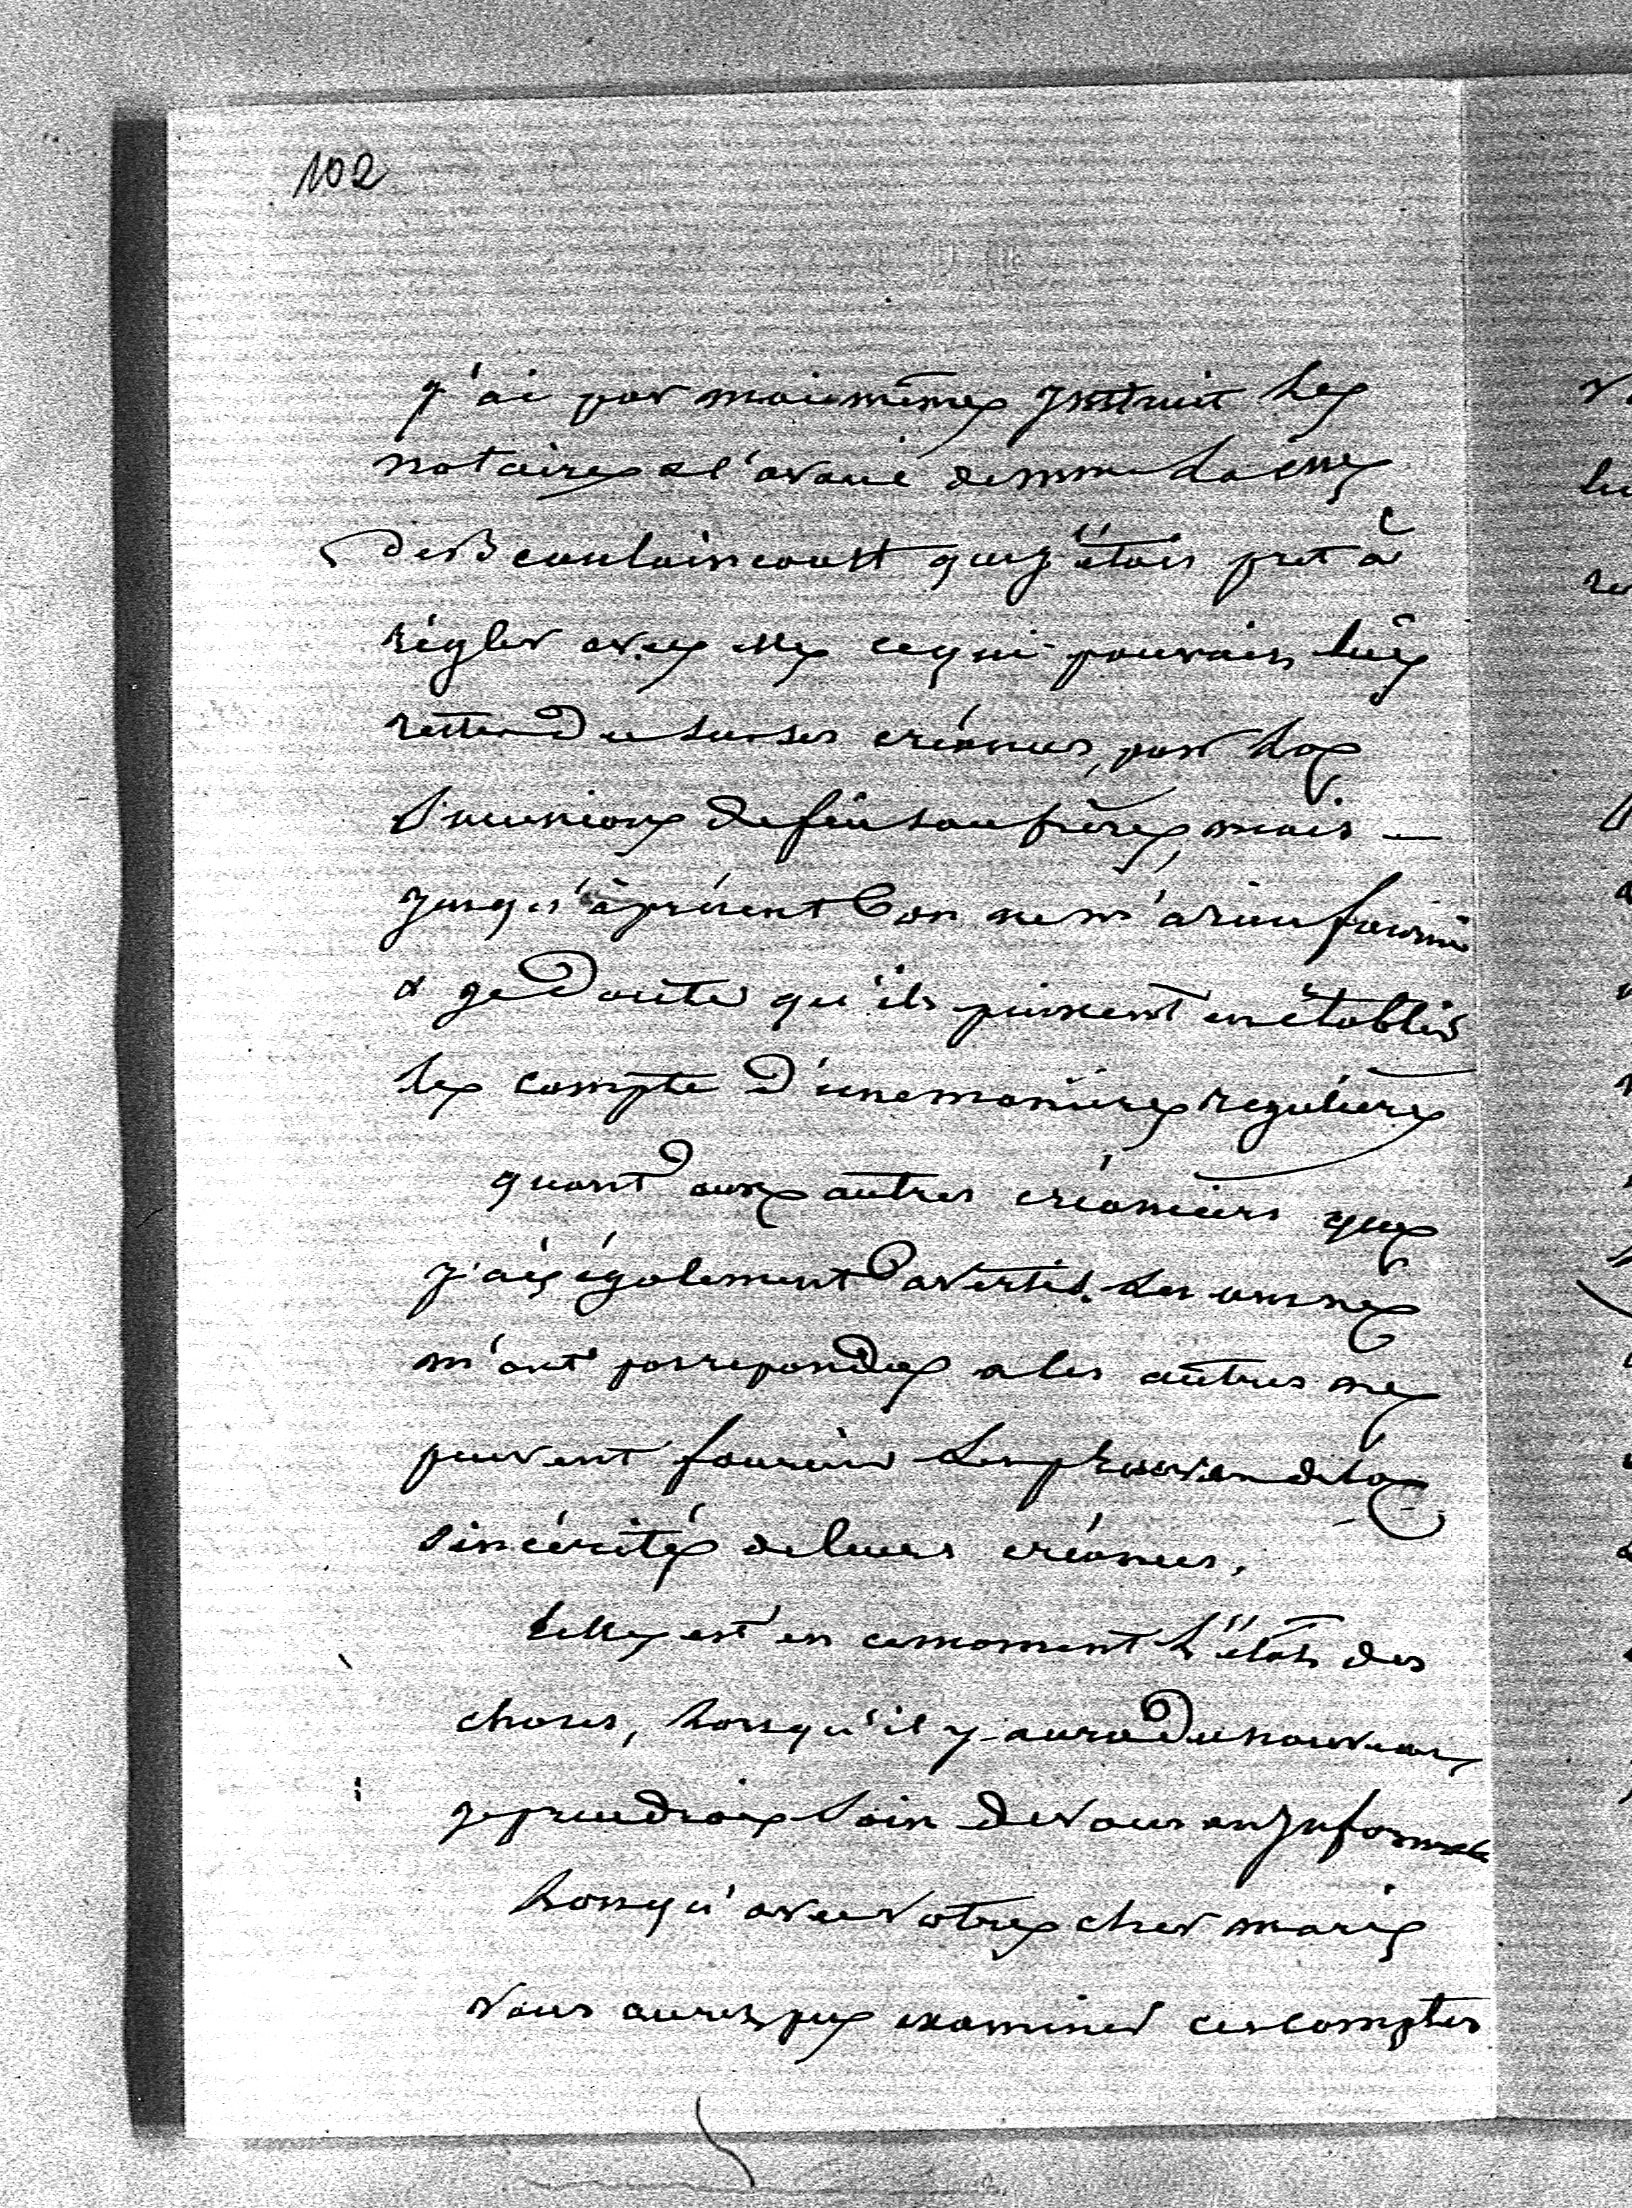 102
j'ai par moi même jnstruit le
notaire & l'avoué de mme la cme
de Beaulaincourt que j'étois pret à
régler avec elle ce qui pouvoit lui
rester du sur ses créances, par la
Succession de feu son frère, mais —
jusqu'à présent l'on ne m'a rien fourni
& je doute qu'ils puissent en établir
le compte d'une manière regulière
quant aux autres créanciers que
j'ai également avertis. les uns ne
m'ont pas repondu & les autres ne
peuvent fournir les preuves de la
sincérité de leurs créances.
telle est en ce moment l'état des
choses, lorsqu'il y aura du nouveau
je prendrai soin de vous en jnformer
lorsqu'avec votre cher mari
vous aurez pu examiner ces comptes